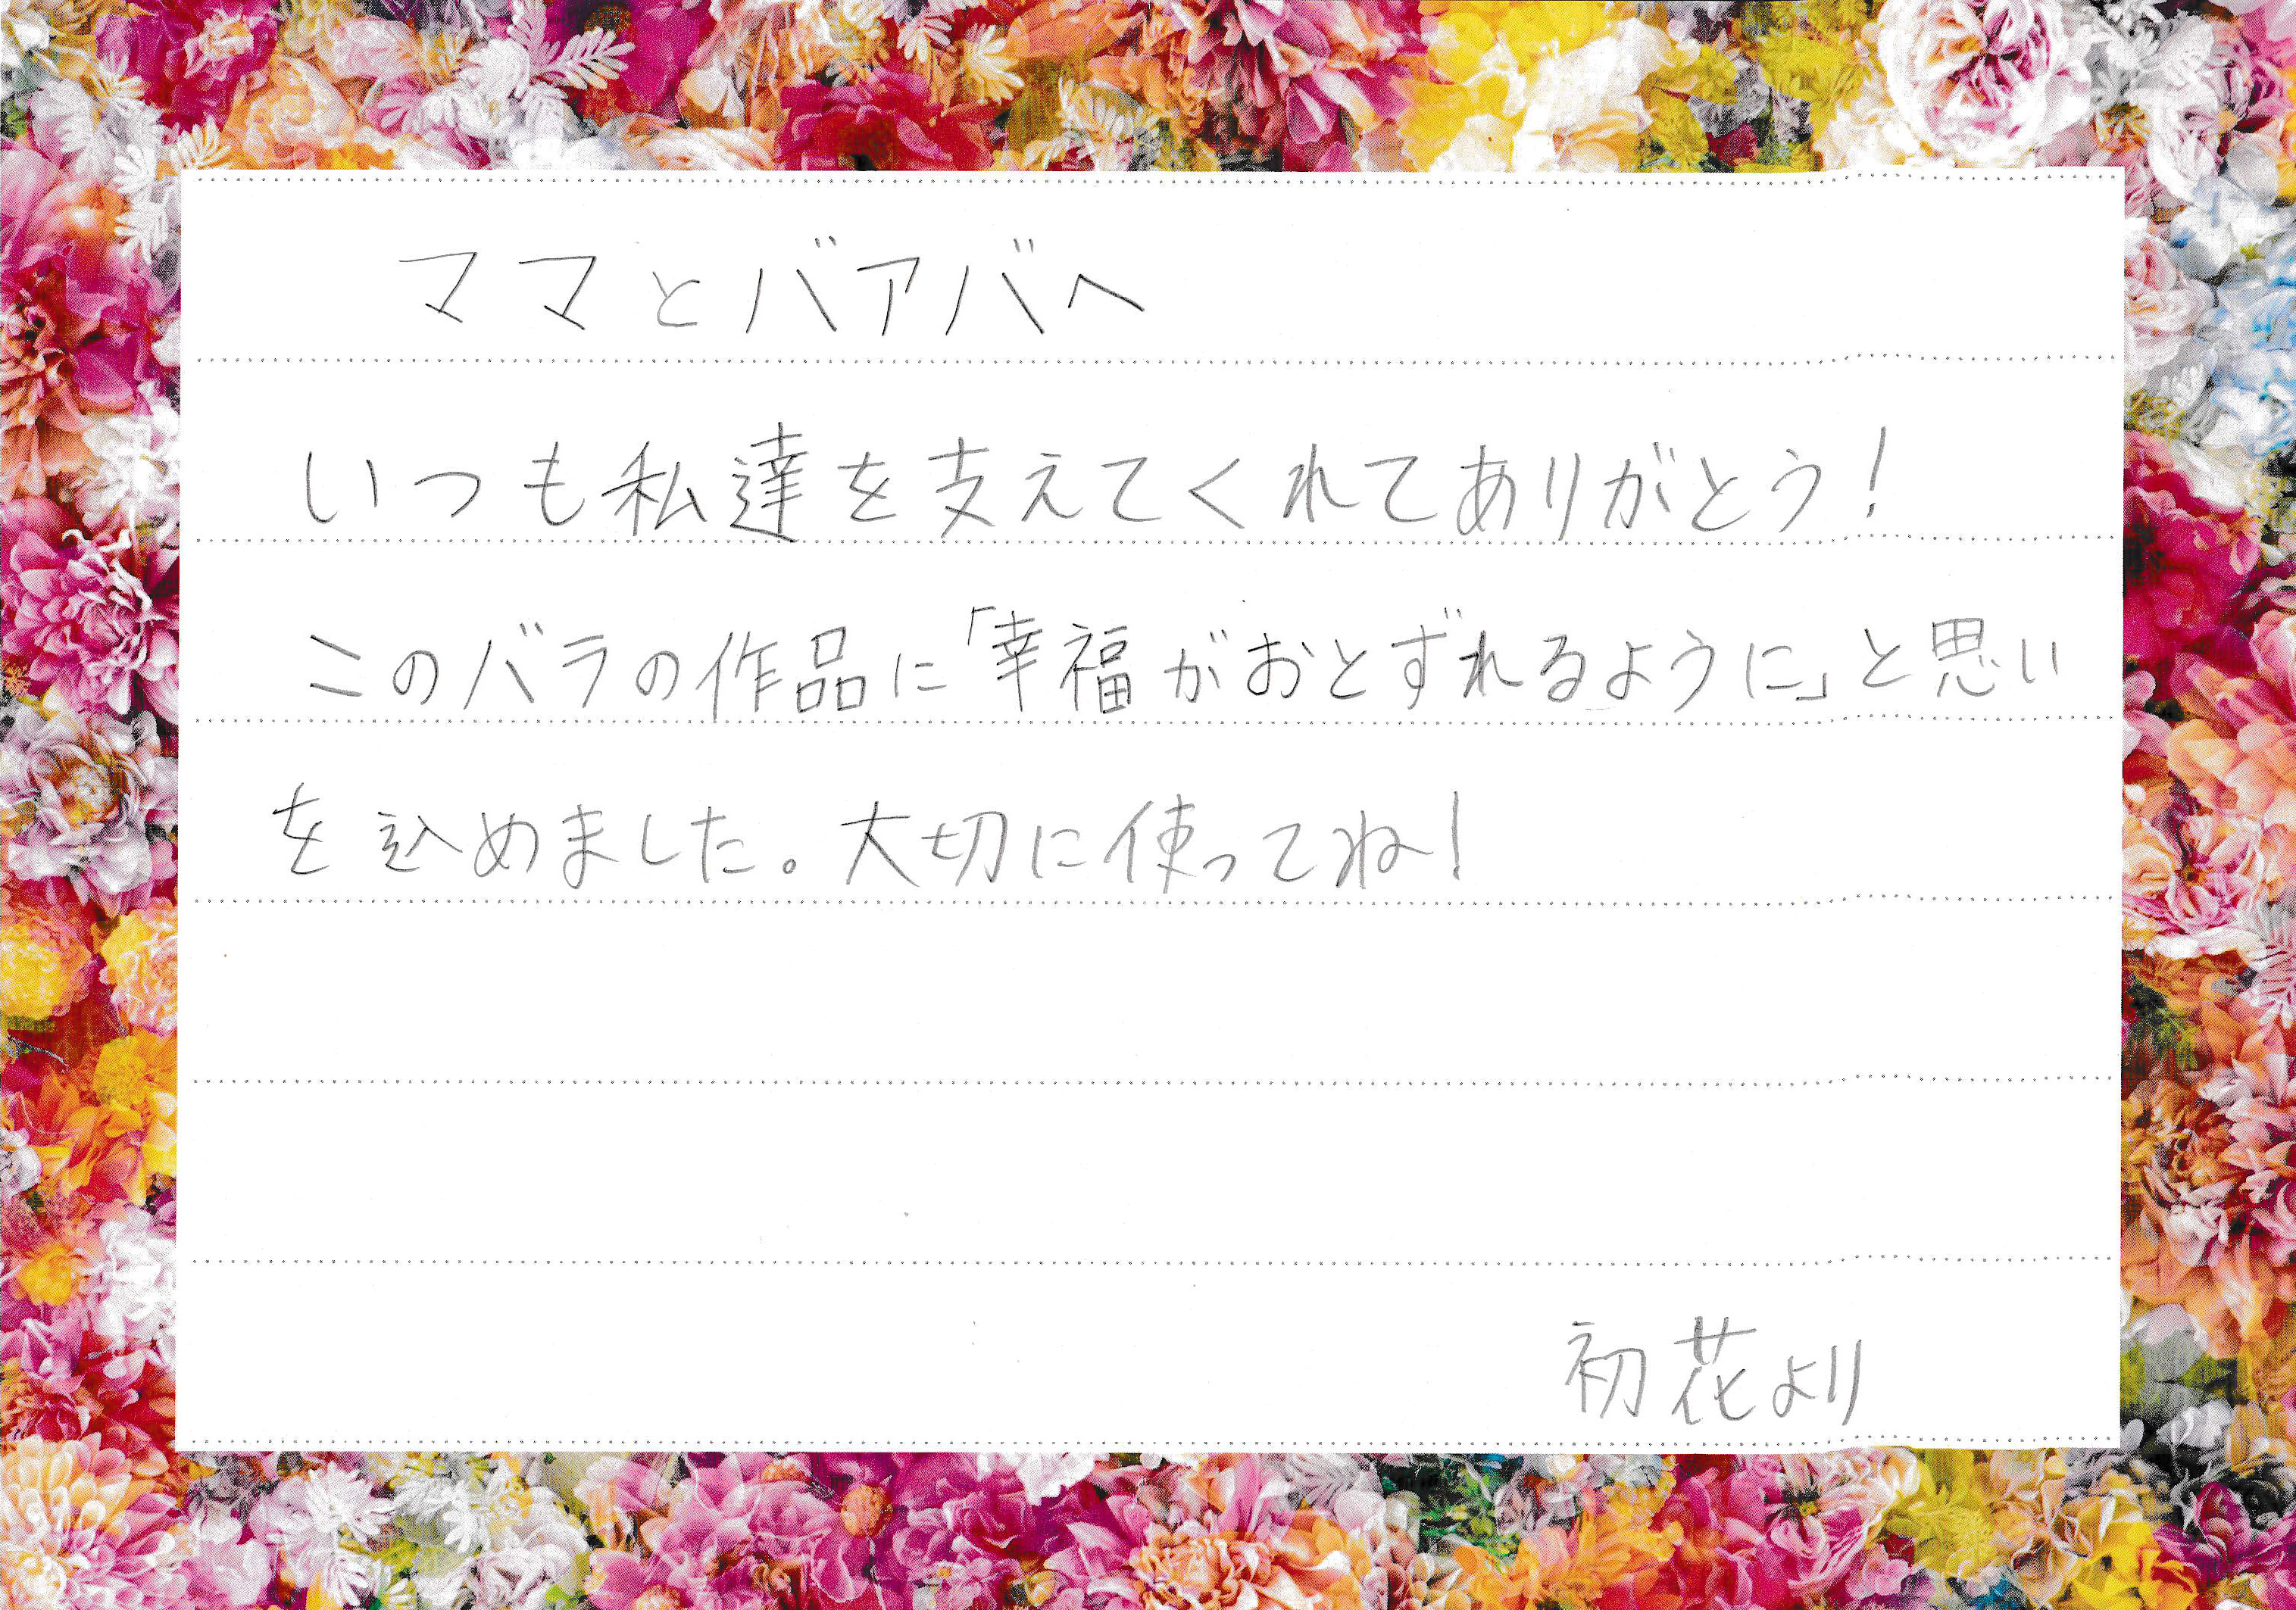 ママとバアバへ
いつも私達を支えてくれてありがとう!
このバラの作品に「幸福がおとずれるように」と思い
を込めました。大切に使ってね!
初花より